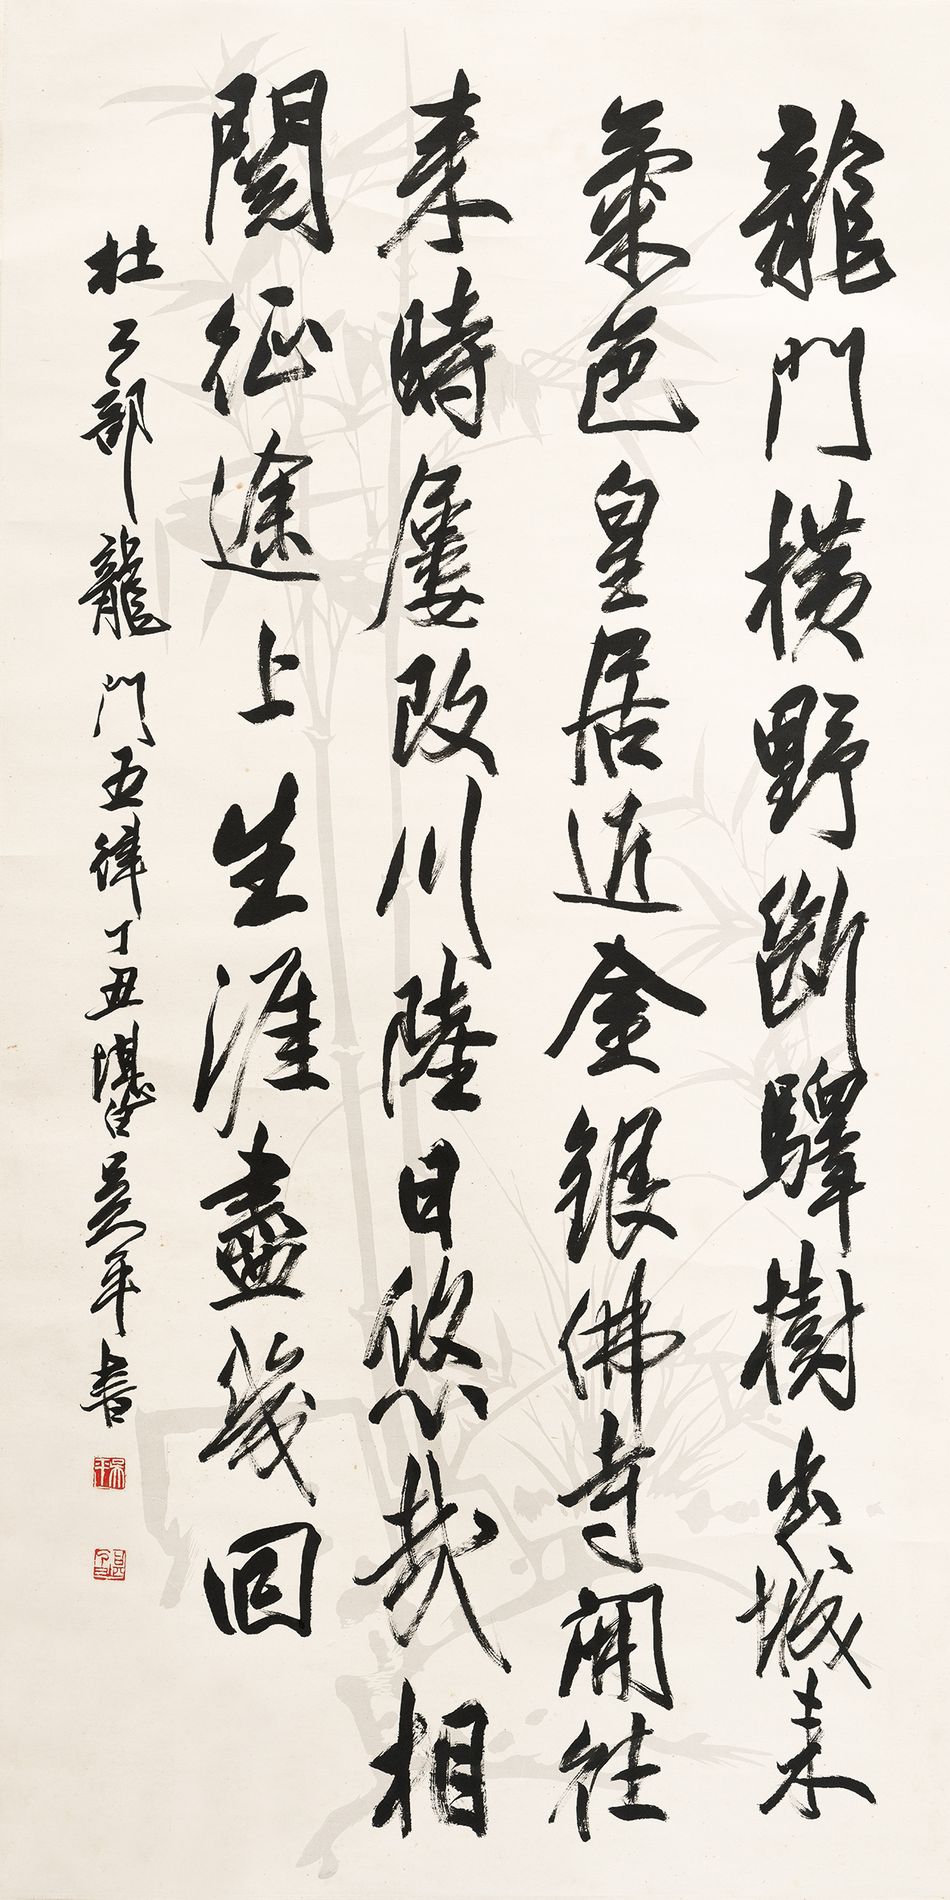 龍門横野斷驛樹出城来
氣色皇居近金銀佛寺開往
来時屢改川陸日悠哉相
閱征途上生涯盡幾回
杜工部龍門五律丁丑堪白吳平書
吳平